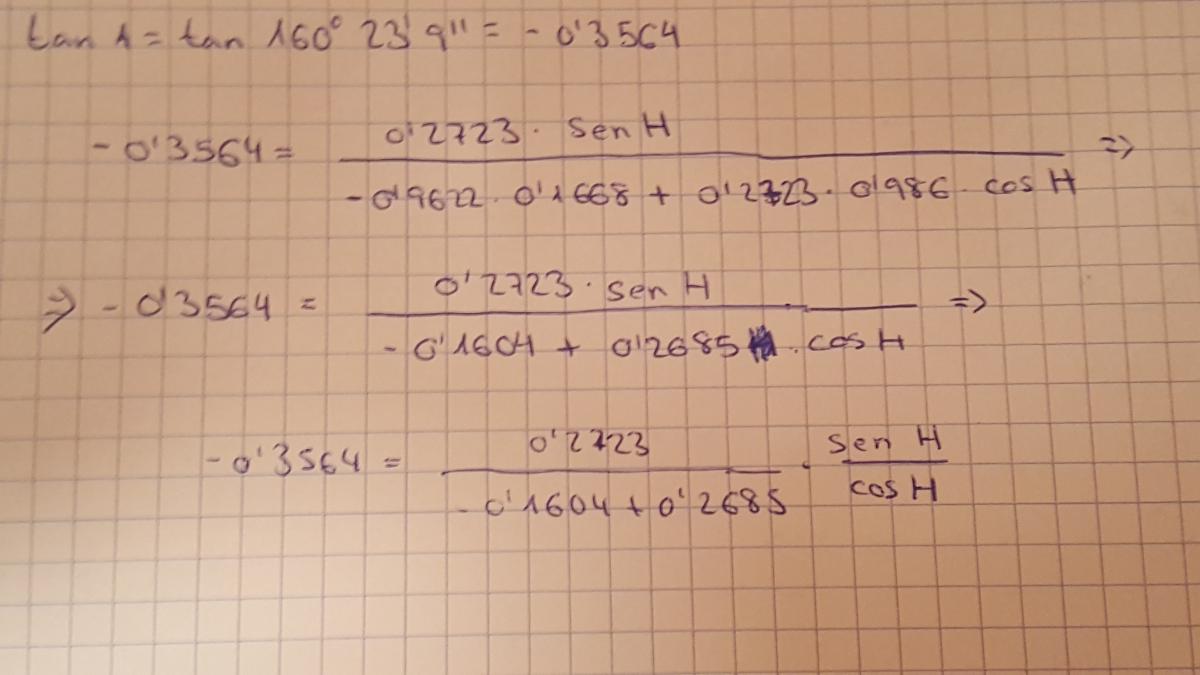 tan A = tan 160° 23' 9'' = - 0'3564
- 0'3564 = 0'2723 · sen H / - 0'9622 · 0'1668 + 0'2723 · 0'986 · cos H =>
=> - 0'3564 = 0'2723 · sen H / - 0'1604 + 0'2685 · cos H =>
- 0'3564 = 0'2723 / - 0'1604 + 0'2685 · sen H / cos H